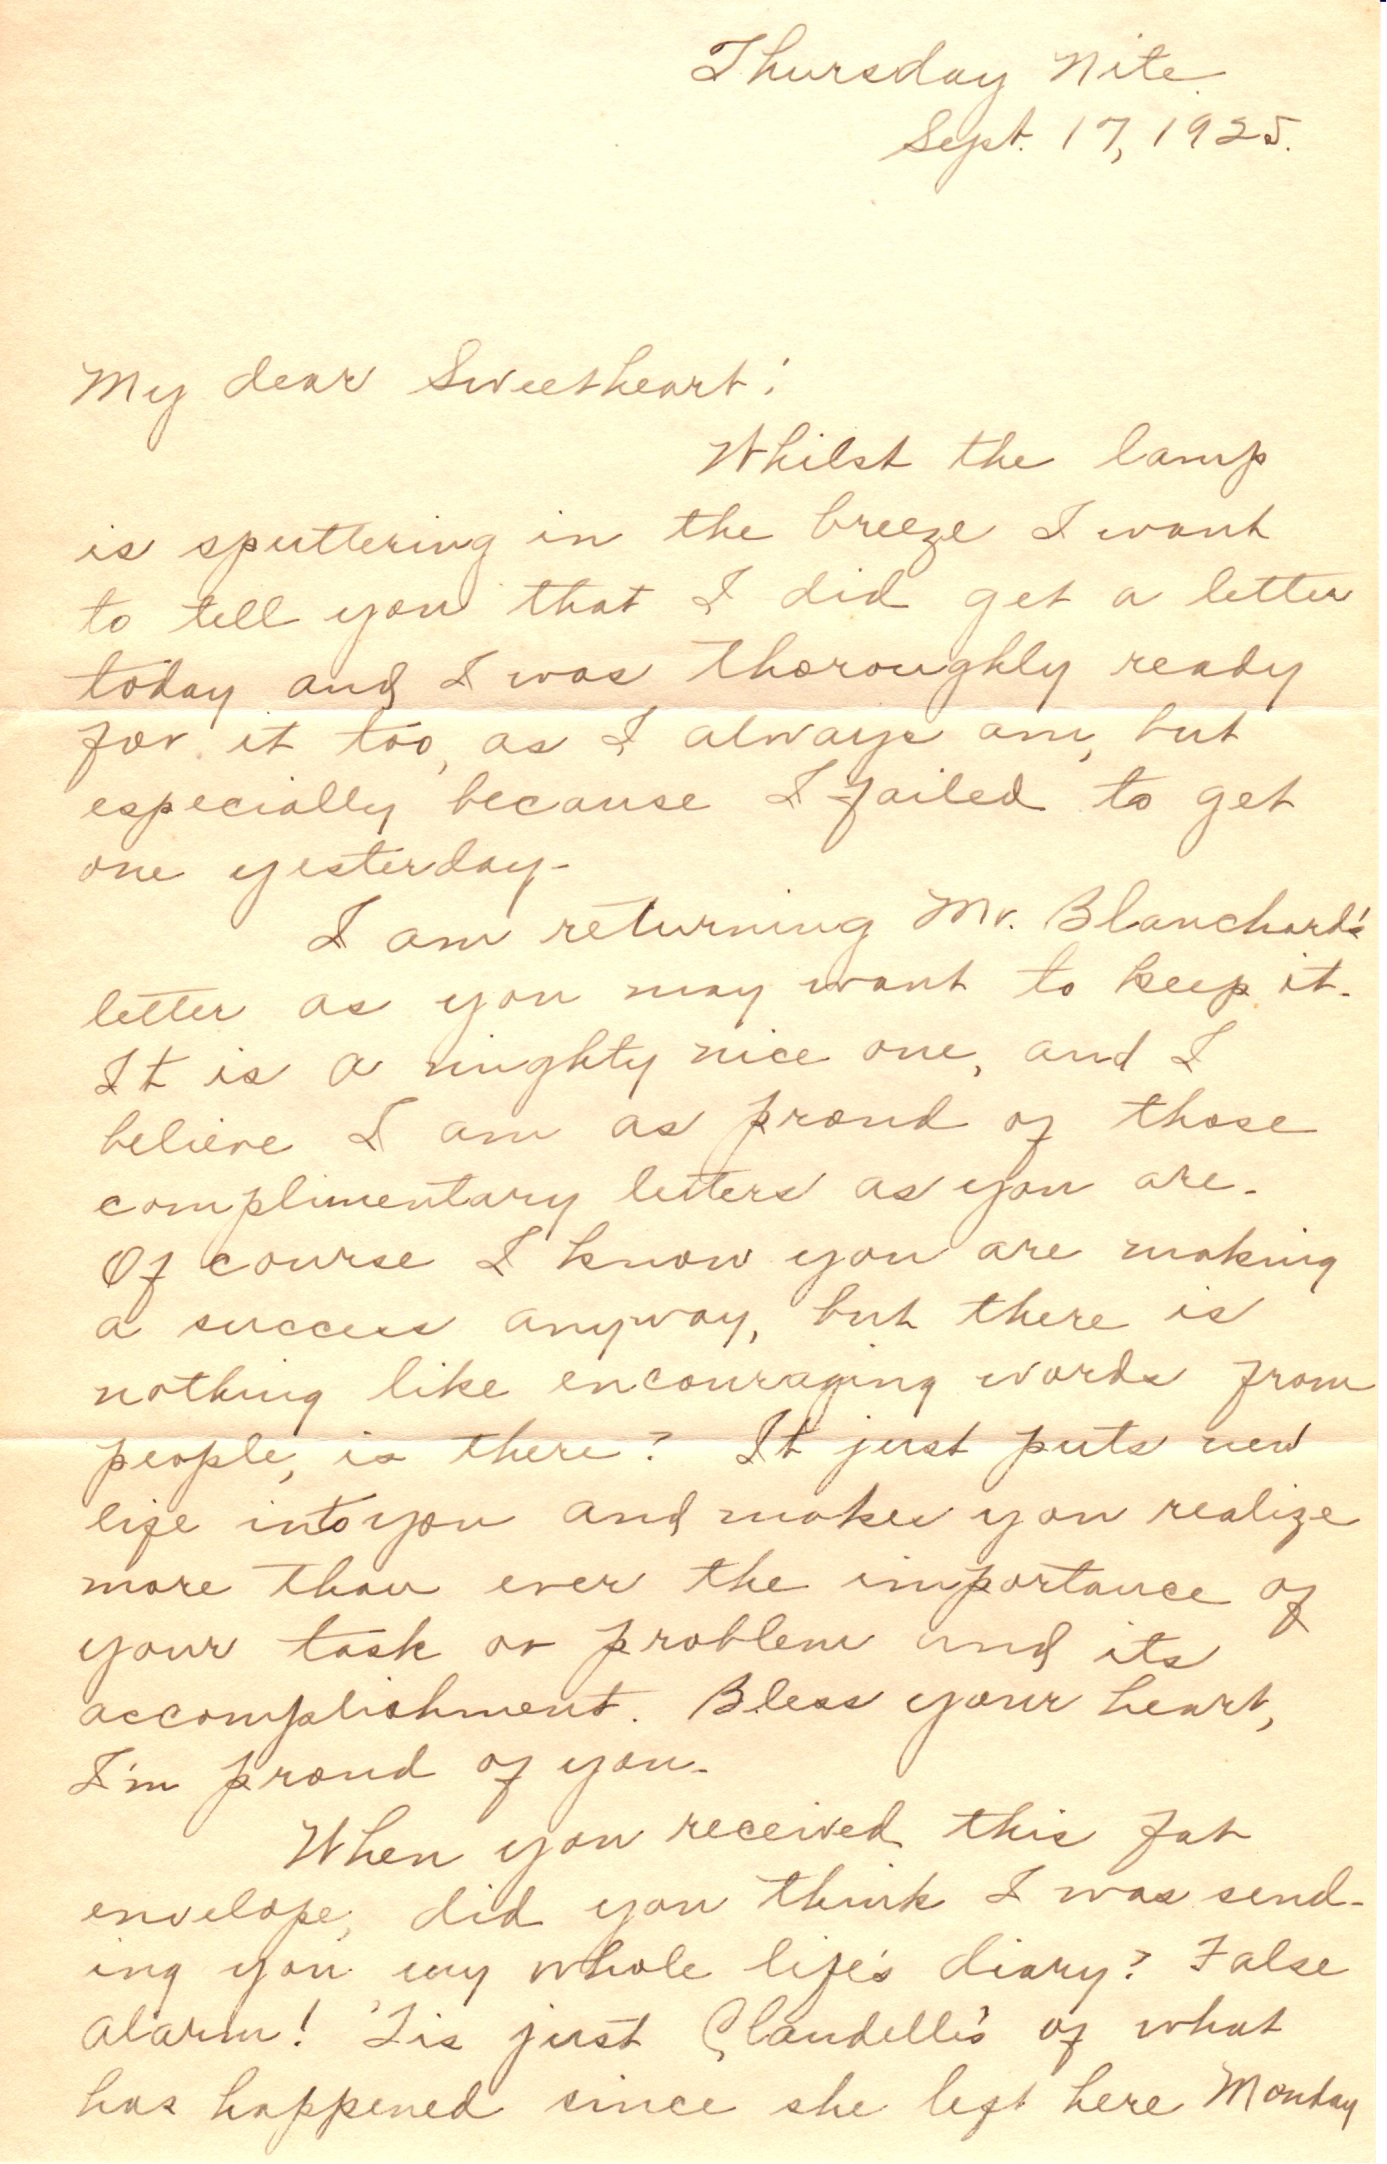 Thursday Nite.
Sept. 17, 1925.
My dear Sweetheart:
Whilst the lamp
is sputtering in the breeze I want
to tell you that I did get a letter
today and I was thoroughly ready
for it too, as I always am, but
especially because I failed to get
one yesterday-
I am returning Mr. Blanchard's
letter as you may want to keep it.
It is a mighty nice one, and I
believe I am as proud of those
complimentary letters as you are.
Of course I know you are making
a success anyway, but there is
nothing like encouraging words from
people, is there? It just puts new
life into you and makes you realize
more than ever the importance of
your task or problem and its
accomplishment. Bless your heart,
I'm proud of you.
When you received this fat
envelope, did you think I was send-
ing you my whole life's diary? False
alarm! 'Tis just Claudelle's of what
has happened since she left here Monday